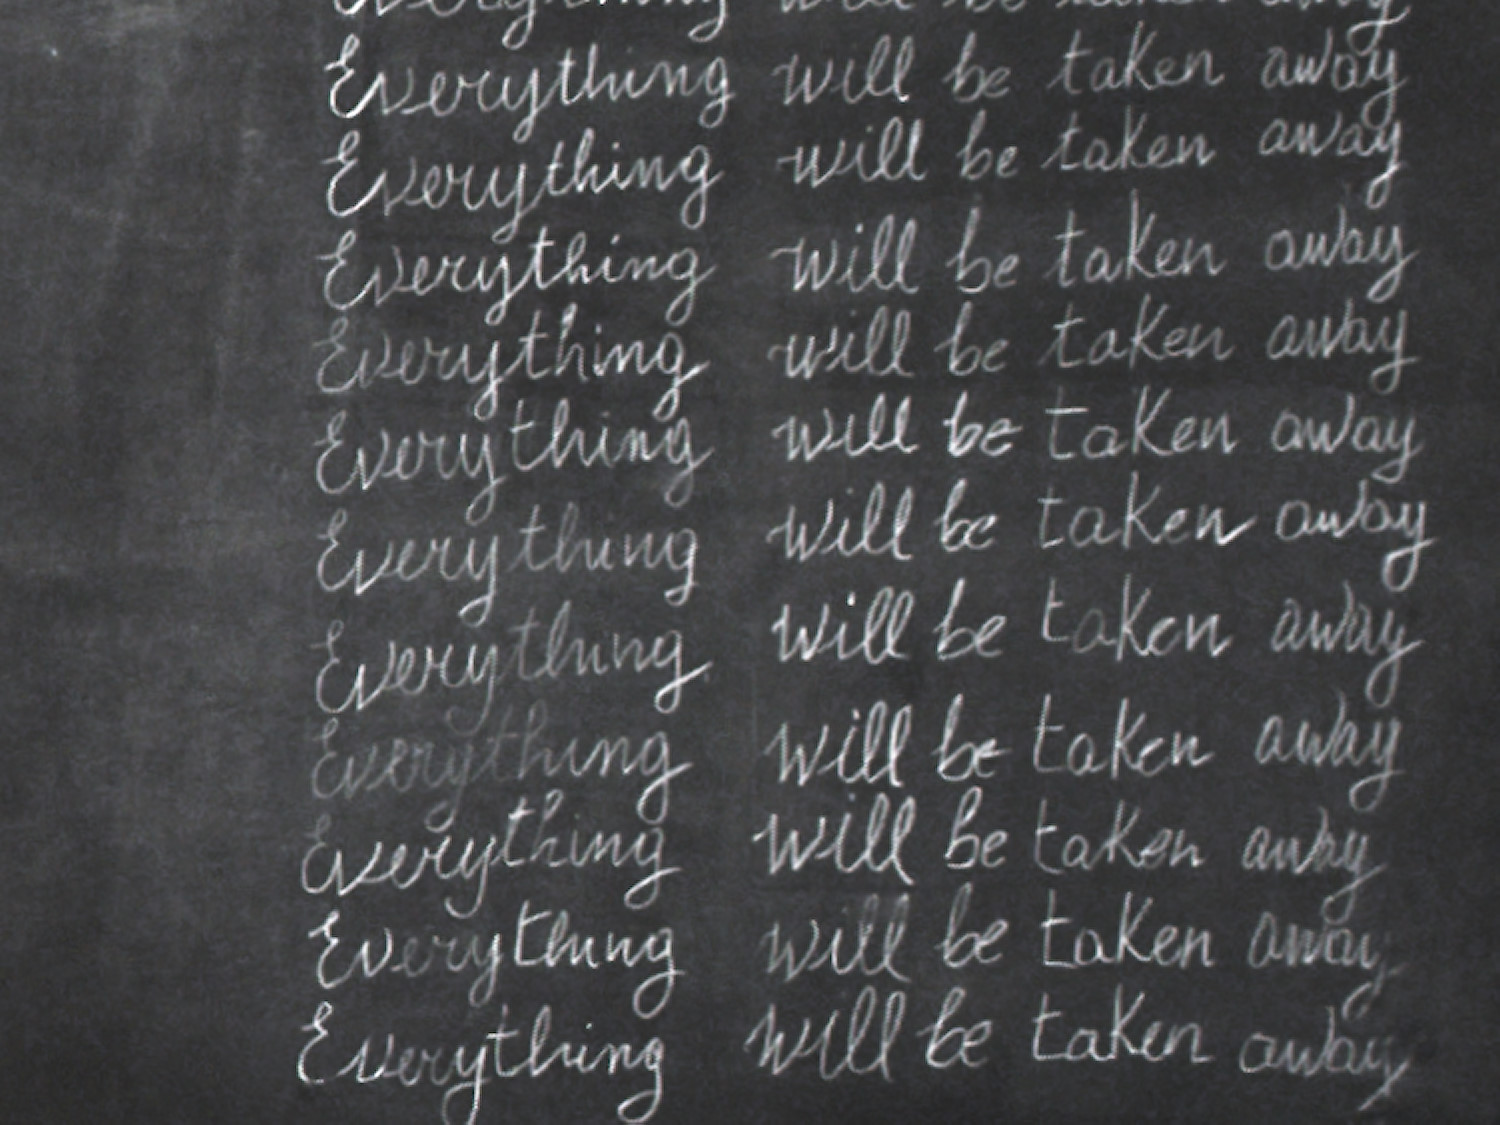 Everything will be taken away
Everything will be taken away
Everything will be taken away
Everything will be taken away
Everything will be taken away
Everything will be taken away
Everything will be taken away
Everything will be taken away
Everything will be taken away
Everything will be taken away
Everything will be taken away
Everything will be taken away